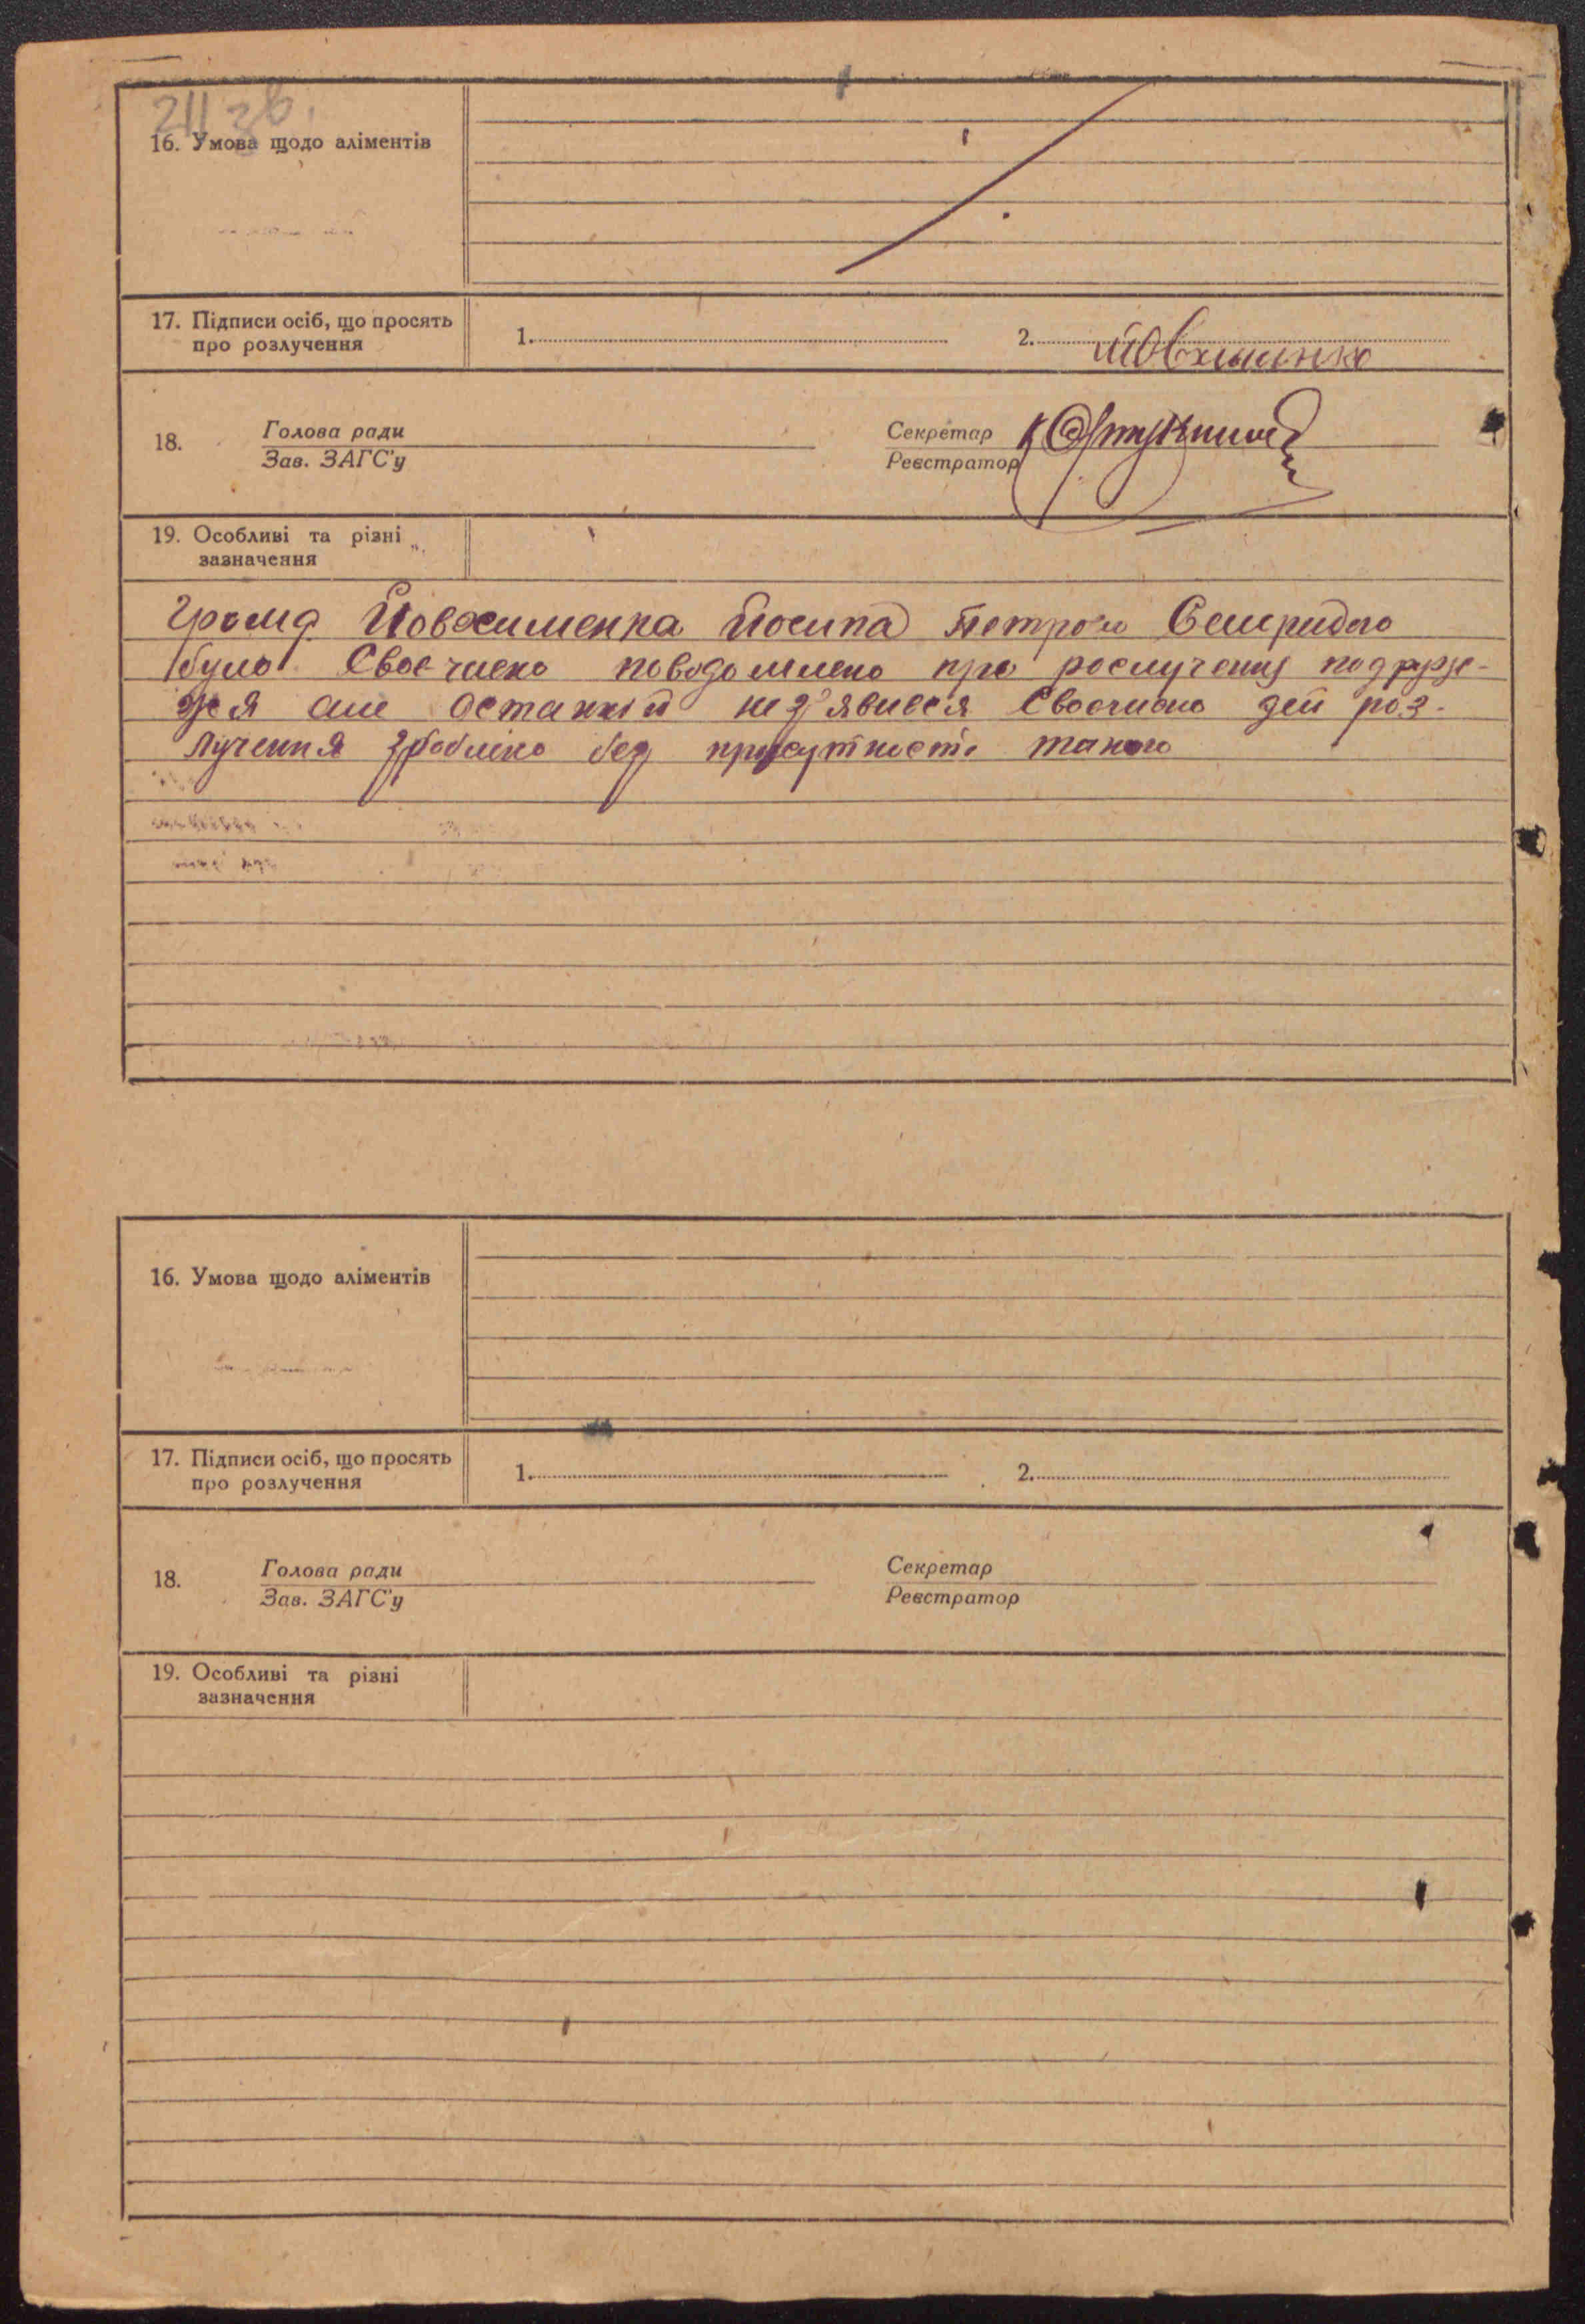 211 зв.
16. Умова щодо аліментів
17. Підписи осіб, що просять
про розлучення
1.
2.
18.
Голова ради
Зав. ЗАГС'у
Секретар
Реєстратор
19. Особливі та різні
зазначення
Громд Йовосименка Йосипа
було Своєчасно поведомлено про рослучению подруж-
жя але останній не з'явився Своєчасно цей роз-
лучення зроблено без присутности такого
16. Умова щодо аліментів
17. Підписи осіб, що просять
про розлучення
1.
2.
18.
Голова ради
Зав. ЗАГС'у
Секретар
Реєстратор
19. Особливі та різні
зазначення